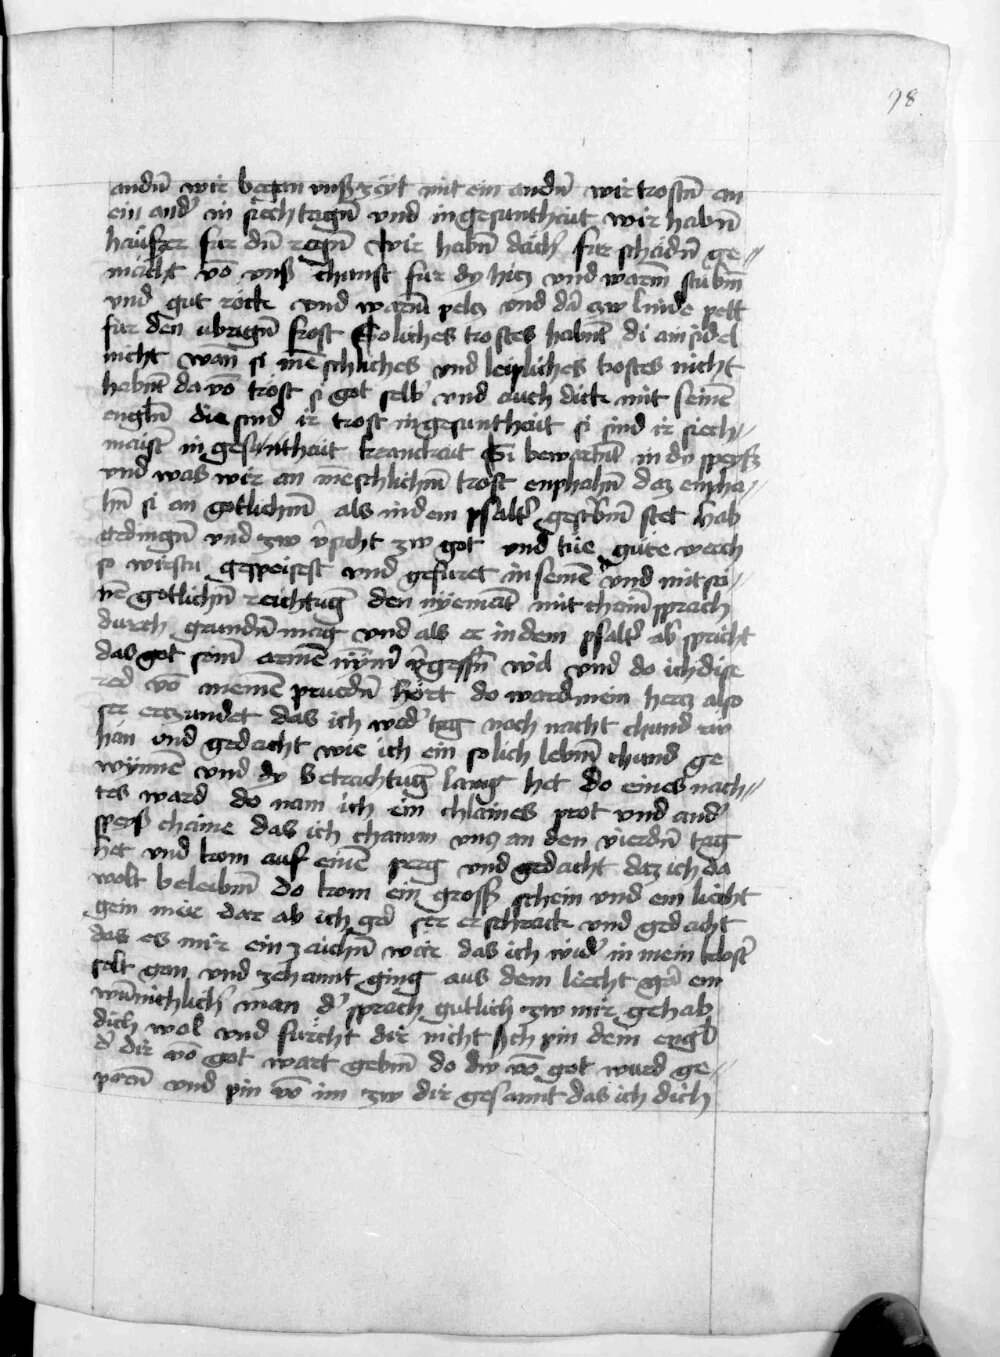 98
andn̄ wir began vnß zeyt mit ein andn̄ wir trostn̄ an
ein and' in siechtagn̄ vnd in gesunthait wir habn̄
hauszer fur dn̄ regn̄ Wir habn̄ dach fur schadn̄ ge=
macht vō vnß chunst fur dy hicz vnd warm̄ stubn̄
vnd gut röck vnd warm̄ pelcz vnd dā zw linde pett
fur den vbrign̄ frost Soliches trostes habnt di ainsidel
nicht wan̄ si mēschliches vnd leipliches trostes nicht
habnt da vō trost si got selb' vnd auch dick mit seinē
engln̄ die sind ir trost in gesunthait si sind ir siech=
maist' in gesuntheit kranckait Si bewarnt in dy speysz
vnd was wir an mēschlichm̄ trost enphahn̄ daz enpha=
hn̄ si an gotlichm̄ als in dem psalt' gescribn̄ stet hab
gedingn̄ vnd zw v'sicht zw got vnd tue güte werch
so wirstu gespeisest vnd gefuret in seinē vnd mit sei=
nē gotlichn̄ reichtuḡ den nyemāt mit chain̄ sprach
durch grundn̄ mag vnd als er in dem psalt' ab' spricht
das got sein' armē nym' v'gessn̄ wil vnd do ich dise
red vō meinē pruedn̄ hört do ward mein hercz also
ser erczundet das ich wed' tag noch nacht chund rw
han vnd gedacht wie ich ein solich lebm̄ chund ge
wynnē vnd dy betrachtuḡ lang het do eines nach=
tes ward do nam ich ein chlaines prot vnd and'
speys chaine das ich chaum vncz an den vierdn̄ tag
het vnd kom auf einē perg vnd gedacht daz ich da
wolt beleibm̄ do kom ein grosß schein vnd ein liecht
gein mir dar ab ich gar ser erschrack vnd gedacht
das es mir ein zaichn̄ wär das ich wid' in mein klost'
solt gan vnd zehannt ging aus dem liecht gar ein
wūnichlich' man d' sprach gutlich zw mir gehab
dich wol vnd furcht dir nicht Ich pin dein engl'
d' dir vō got wart gebm̄ do dw vō got wurd ge=
porn̄ vnd pin vō im zw dir gesannt das ich dich